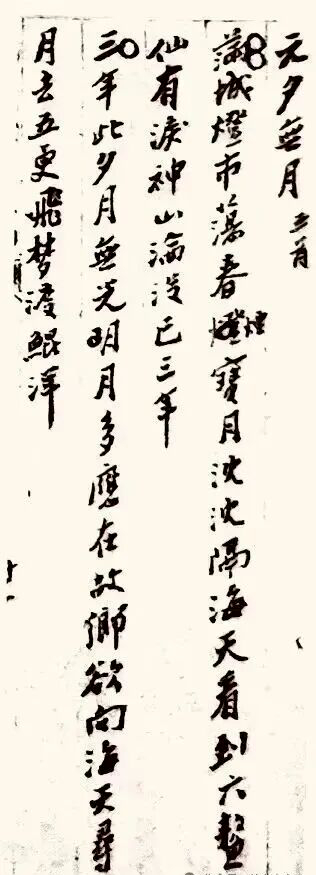 元夕無月 二首
滿城燈市蕩春煙寶月沈沈隔海天看到六鰲
仙有淚神山淪沒已三年
三年此夕月無光明月多應在故鄉欲向海天尋
月去五更飛夢渡鯤洋